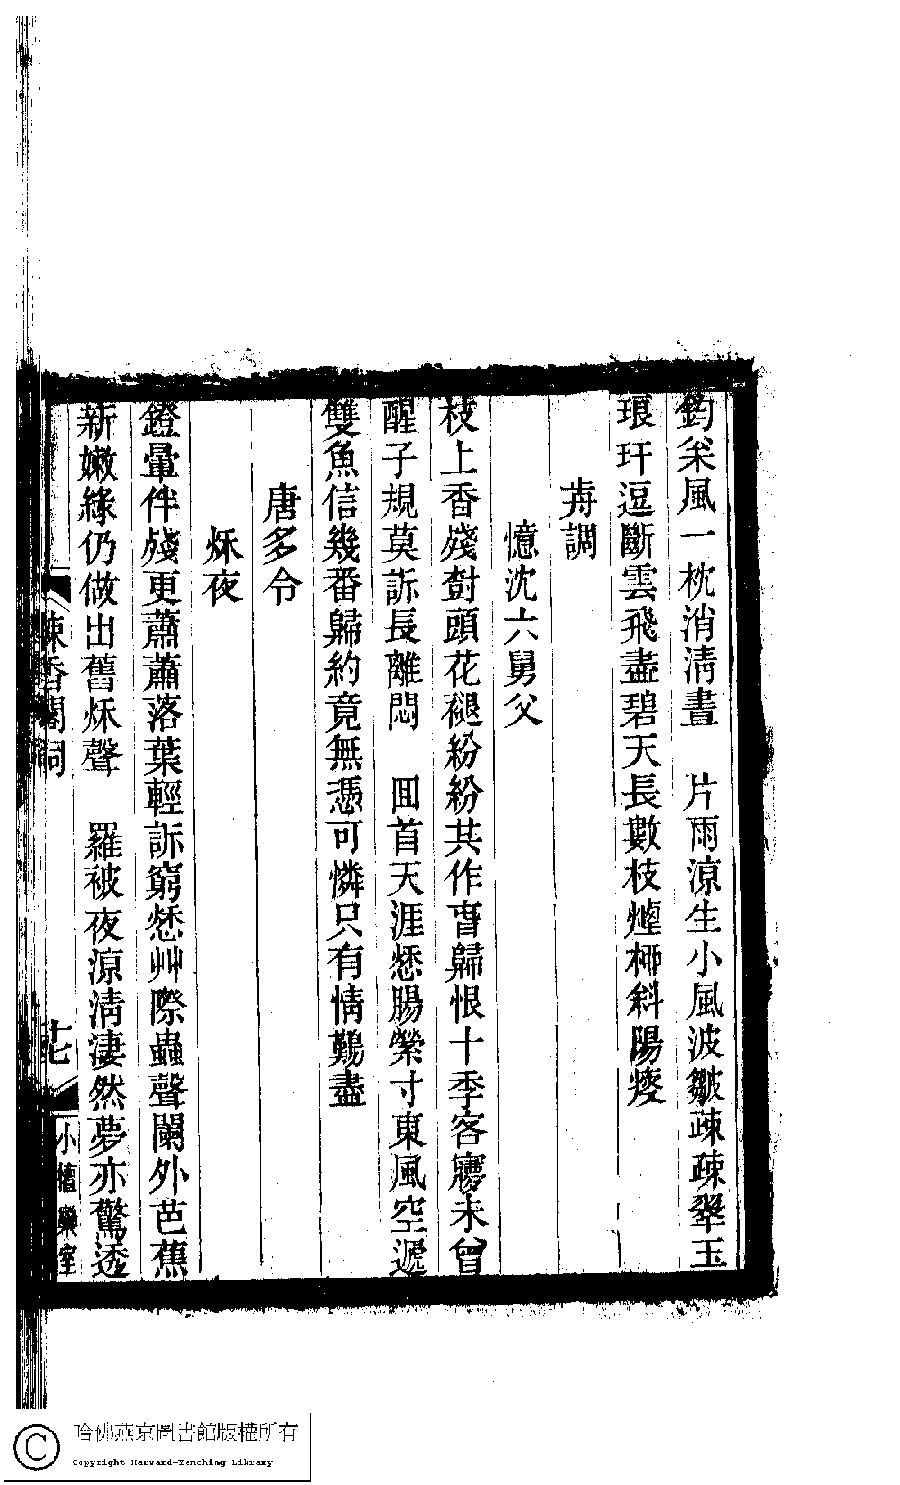 鈞米風一枕消清晝　片雨涼生小風波皺疎疎翠玉
琅玕逗斷雲飛盡碧天長數枝煙桺斜陽瘦
歬調
憶沈六舅父
枝上香殘敱頭花褪紛紛共作春歸恨十季客寢未曾
醒子規莫訴長離悶　囬首天涯愁腸縈寸東風空遞
雙魚信幾番歸約竟無憑可憐只有情難盡
唐多令
秌夜
鐙暈伴殘更蕭蕭落葉輕訴窮愁艸際蟲聲闌外芭蕉
新嫩綠仍做出舊秌聲　羅被夜涼淸淒然夢亦驚透
疎香閣詞
十七
小檀欒室
哈佛燕京圖書館版權所有
Copyright Harvard-Yenching Library